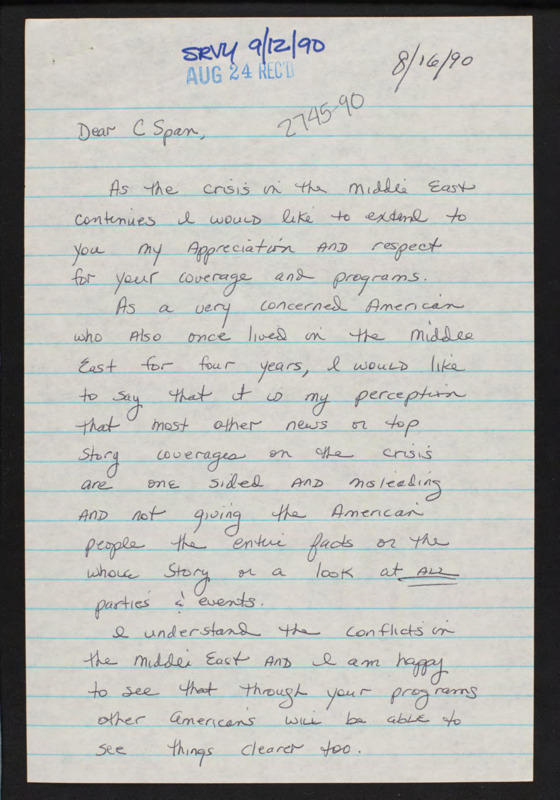 SRVY 9/12/90
AUG 24 REC'D
8/16/90
2745-90
Dear C Span,
As the crisis in the Middle East
continues I would like to extend to
you my Appreciation AND respect
for your coverage and programs.
As a very concerned American
who Also once lived in the Middle
East for four years, I would like
to say that it is my perception
that most other news or top
story coverages on the crisis
are one sided AND misleading
AND not giving the American
people the entire facts or the
whole story or a look at ALL
parties & events.
I understand the conflicts in
the Middle East AND I am happy
to see that through your programs
other Americans will be able to
see things clearer too.